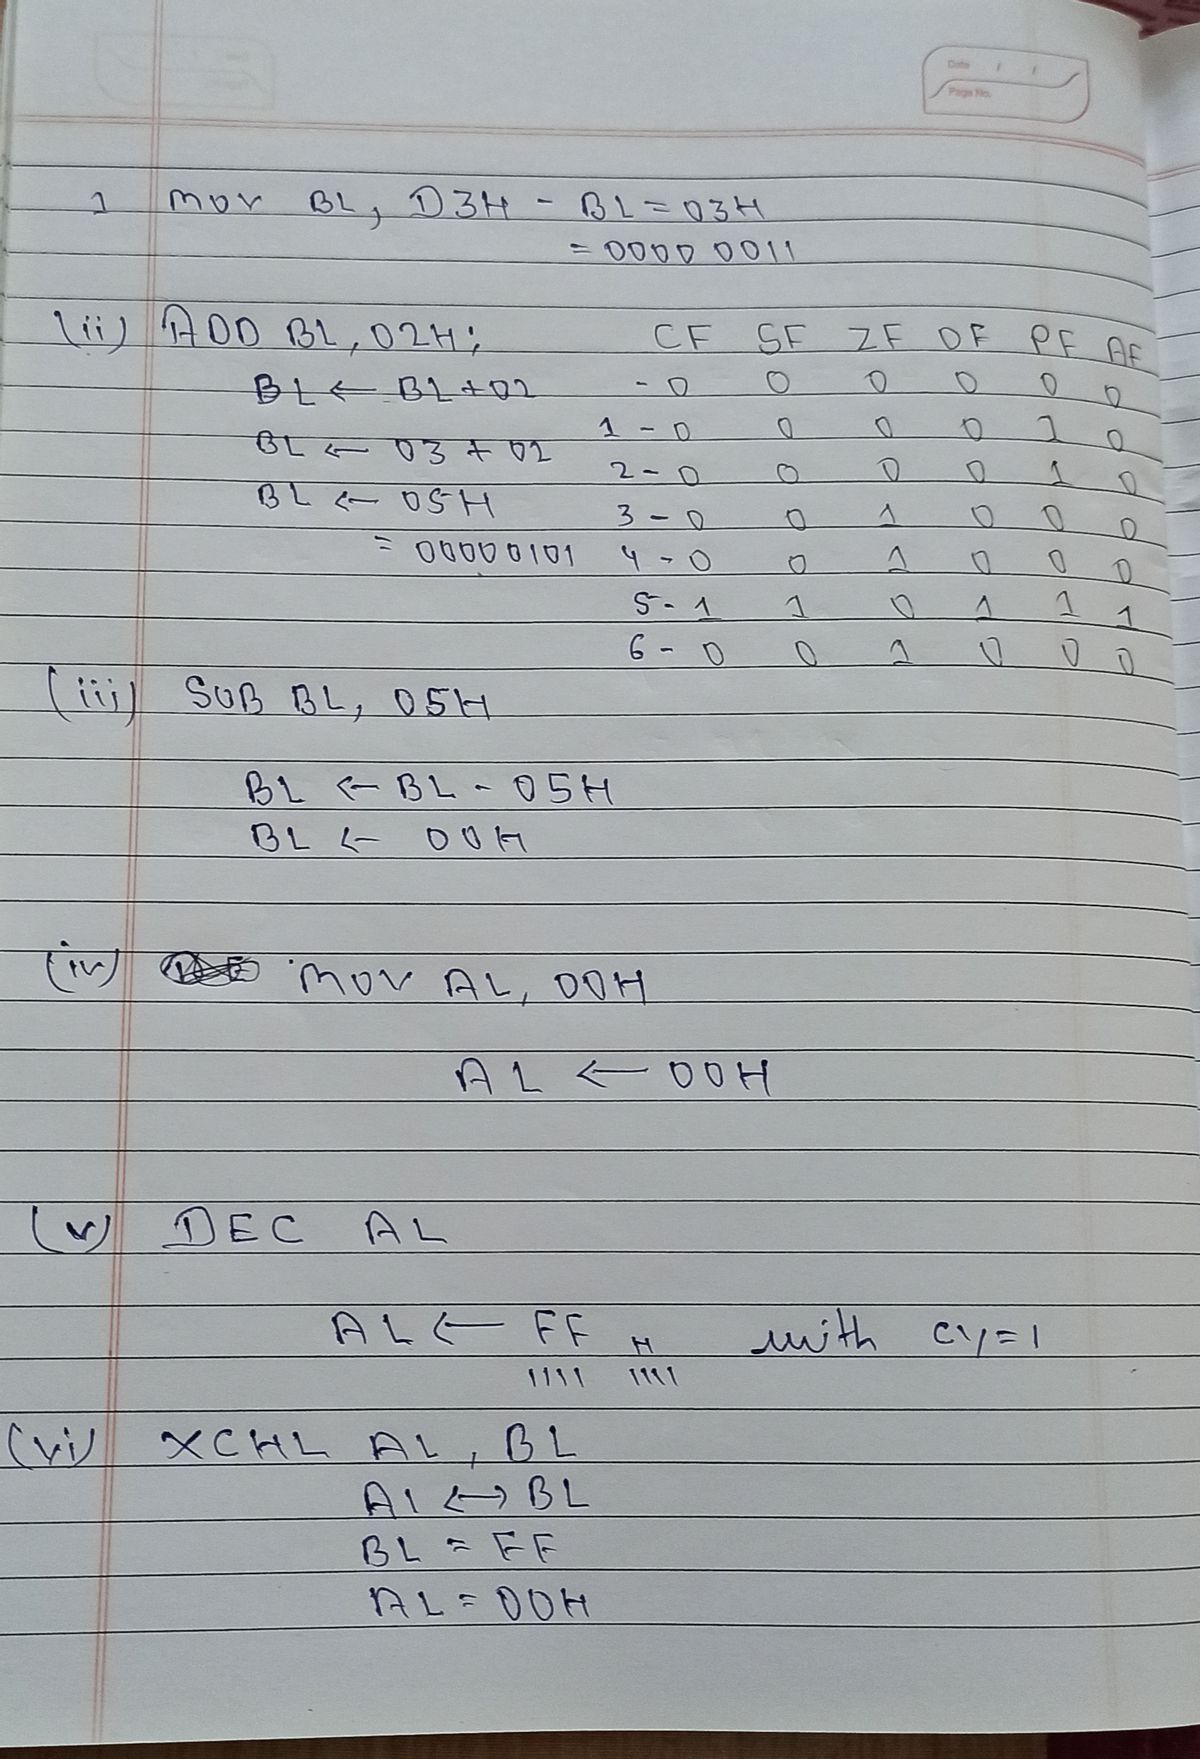 Date / /
Page No.
1 mov BL, D3H - BL = 03H
= 0000 0011
(ii) ADD BL, 02H; CF SF ZF OF PF AF
BL ← BL + 02 - 0 0 0 0 0 0
BL ← 03 + 02 1 - 0 0 0 0 1 0
BL ← 05H 2 - 0 0 0 0 1 0
= 00000101 3 - 0 0 1 0 0 0
4 - 0 0 1 0 0 0
5 - 1 1 0 1 1 1
6 - 0 0 1 0 0 0
(iii) SUB BL, 05H
BL ← BL - 05H
BL ← 00H
(iv) MOV AL, 00H
AL ← 00H
(v) DEC AL
AL ← FF H with cy=1
1111 1111
(vi) XCHL AL, BL
Al ↔ BL
BL = FF
AL = 00H